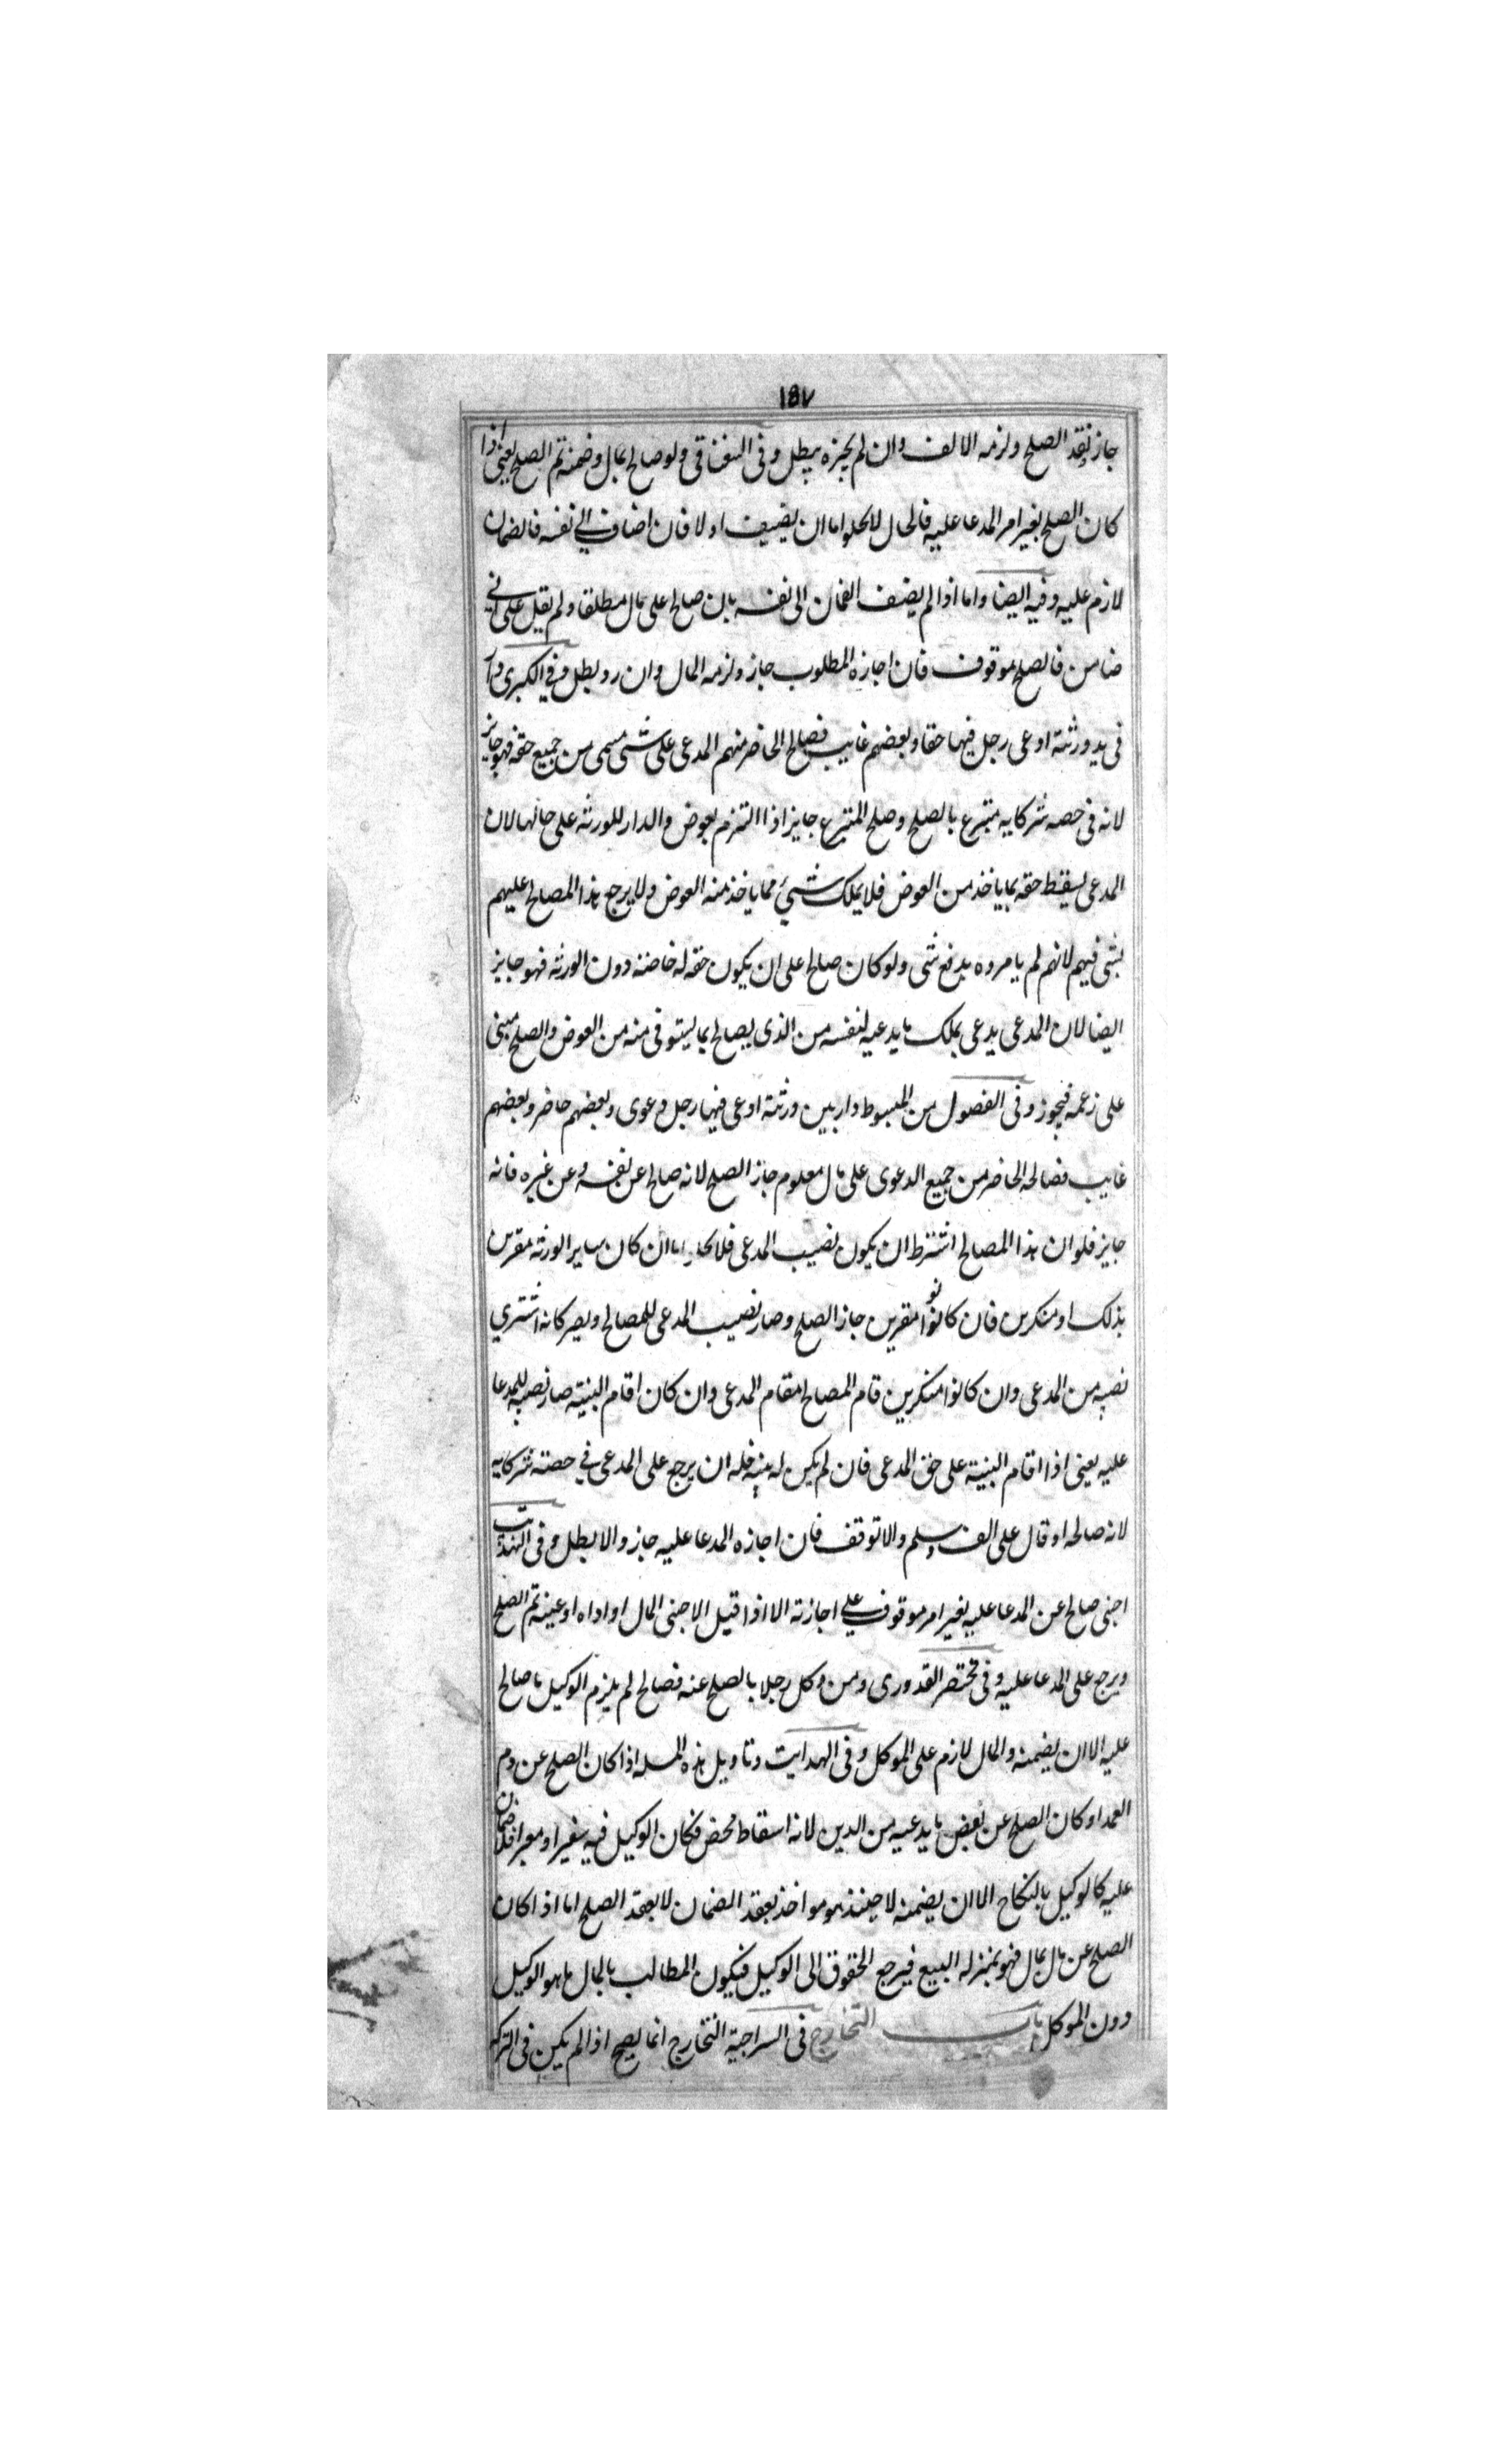 ١٥٧
جاز نقد الصلح ولزمه الالف وان لم يجزه يبطل وفى النفاقى ولو صالح بمال وضمنه تم الصلح يعنى اذا
كان الصلح بغير امر المدعا عليه فالحال لا يخلوا اما ان يضيف اولا فان اضاف الى نفسه فالضمان
لازم عليه وفيه ايضا واما اذا لم يضف الضمان الى نفسه بان صالح على مال مطلقا ولم يقل على انى
ضامن فالصلح موقوف فان اجازه المطلوب جاز ولزمه المال وان رد بطل وفى الكبرى دار
فى يد ورثته ادعى رجل فيها حقا وبعضهم غايب فصالح الحاضر منهم المدعى على شئ مسمى من جميع حقه فهو جايز
لانه فى حصه شركايه متبرع بالصلح وصلح المتبرع جايز اذا التزم بعوض والدار للورثه على حالها لان
المدعى يسقط حقه بما ياخذ من العوض فلا يملك شئ مما ياخذ منه العوض ولا يرجع هذا المصالح عليهم
بشئ فيهم لانهم لم يامروه بدفع شئ ولو كان صالح على ان يكون حقه له خاصة دون الورثه فهو جايز
ايضا لان المدعى يدعى بملك ما يدعيه لنفسه من الذى يصالح بما يستوفى منه من العوض والصلح مبنى
على زعمه فيجوز وفى الفصول من المبسوط دار بين ورثته ادعى فيها رجل دعوى وبعضهم حاضر وبعضهم
غايب فصالحه الحاضر من جميع الدعوى على مال معلوم جاز الصلح لانه صالح عن نفسه وعن غيره فانه
جايز فلو ان هذا المصالح اشترط ان يكون نصيب المدعى فلا يخلو اما ان كان ساير الورثه مقرين
بذلك او منكرين فان كانوا مقرين جاز الصلح وصار نصيب المدعى للمصالح ويصير كانه اشتري
نصيبه من المدعى وان كانوا منكرين قام المصالح مقام المدعى وان كان اقام البينة صار نصيبه للمدعا
عليه يعنى اذا اقام البينة على حق المدعى فان لم يكن له بينه فله ان يرجع على المدعى فى حصته شركايه
لانه صالحه او قال على الف وسلم والا توقف فان اجازه المدعا عليه جاز والا بطل وفى
اجنبى صالح عن المدعا عليه بغير امر موقوف على اجازته الا اذا قبل الاجنبى المال او اداه او عينه تم الصلح
ويرجع على المدعا عليه وفى مختصر القدورى ومن وكل رجلا بالصلح عنه فصالح لم يلزم الوكيل ما صالح
عليه الا ان يضمنه والمال لازم على الموكل وفى الهدايت وتاويل هذه المسله اذا كان الصلح عن دم
العمد او كان الصلح عن بعض ما يدعيه من الدين لانه اسقاط محض فكان الوكيل فيه سفيرا ومعبرا فلا ضمان
عليه كالوكيل بالنكاح الا ان يضمنه لا حينئذ هو مواخذ بعقد الضمان لا بعقد الصلح اما اذا كان
الصلح عن مال بمال فهو بمنزله البيع فيرجع الحقوق الى الوكيل فيكون المطالب بالمال ما هو الوكيل
دون الموكل باب التخارج فى السراجية التخارج انما يصح اذا لم يكن فى التركه